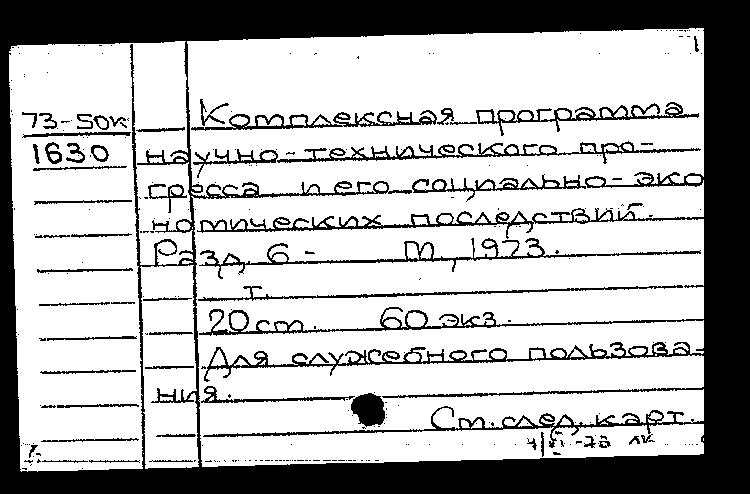 1
73-50к Комплексная программа
1630 научно-технического про-
гресса и его социально-эко
номических последствий.
Разд. 6- М, 1973.
т.
20 ст. 60 экз.
Для служебного пользова-
ния.
Ст. след. карт.